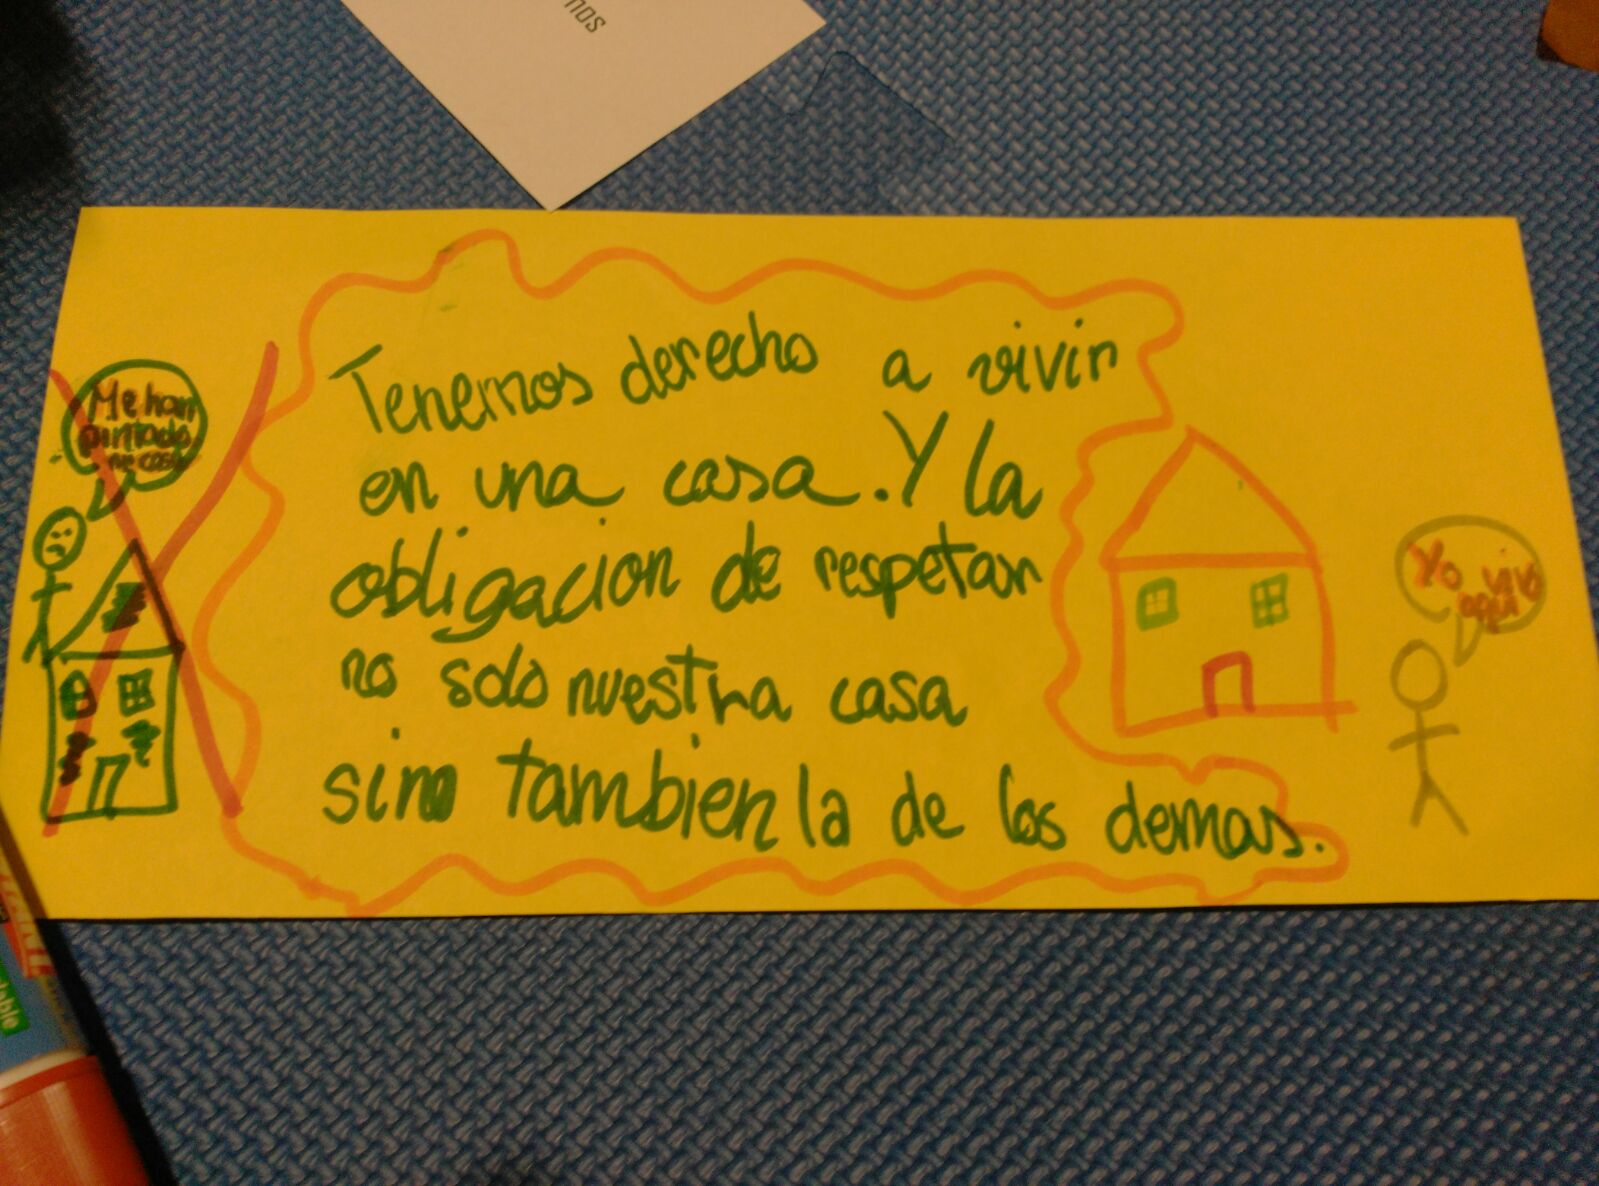 nos
Me han
pintado
mi casa
Tenemos derecho a vivir
en una casa. Y la
obligacion de respetar
no solo nuestra casa
sino tambien la de los demas.
Yo vivo
aqui